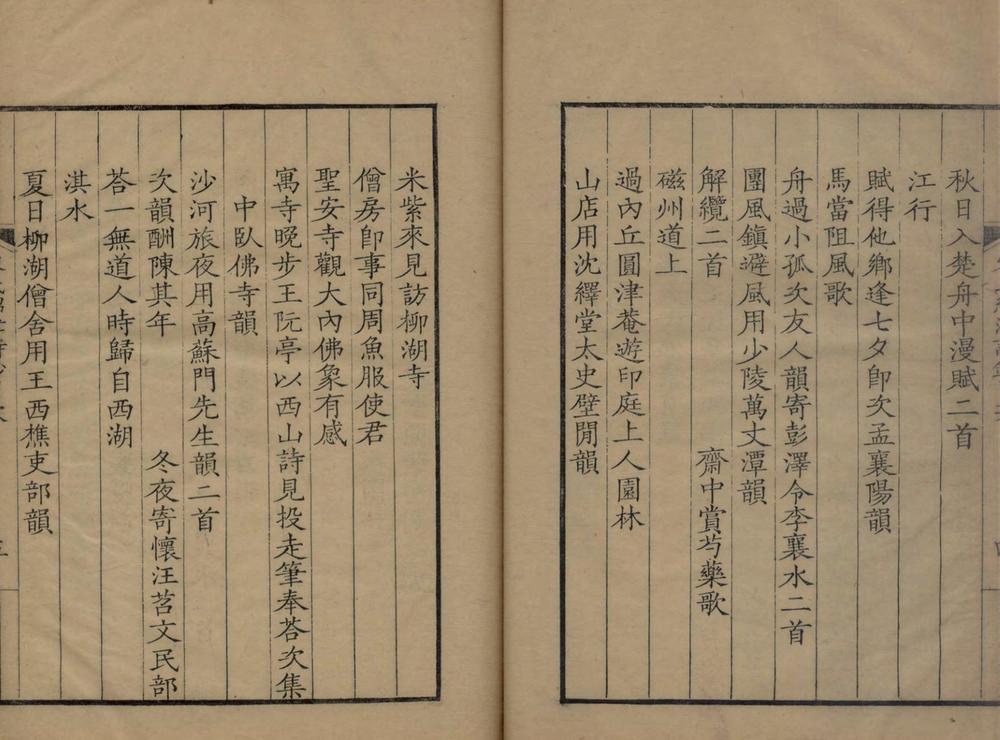 秋日入楚舟中漫賦二首
江行
賦得他鄉逢七夕卽次孟襄陽韻
馬當阻風歌
舟過小孤次友人韻寄彭澤令李襄水二首
團風鎮避風用少陵萬丈潭韻
解纜二首　齋中賞芍藥歌
磁州道上
過內丘圓津菴遊印庭上人園林
山店用沈繹堂太史壁閒韻
米紫來見訪柳湖寺
僧房卽事同周魚服使君
聖安寺觀大內佛象有感
寓寺晚步王阮亭以西山詩見投走筆奉荅次集
中臥佛寺韻
沙河旅夜用高蘇門先生韻二首
次韻酬陳其年　冬夜寄懷汪苕文民部
荅一無道人時歸自西湖
淇水
夏日柳湖僧舍用王西樵吏部韻